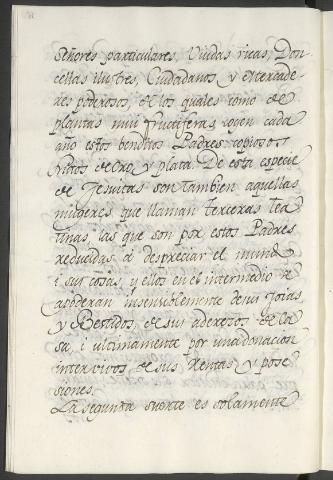 Señores particulares, Viudas ricas, Don-
cellas ilustres, Ciudadanos y Mercade-
res poderosos, de los quales como de
plantas mui fructiferas cogen cada
año estos benditos Padres copiosos
frutos de oro y plata. De esta especie
de Jesuitas son tambien aquellas
mugeres que llaman terceras Tea-
tinas, las que son por estos Padres
reducidas à despreciar el mundo
i sus cosas, y ellos en el intermedio se
apoderan insensiblemente de sus Joias
y Vestidos, de sus aderesos de ca-
sa, i ultimamente por una donacion
intervivos de sus Rentas y pose-
siones.
La segunda suerte es solamente